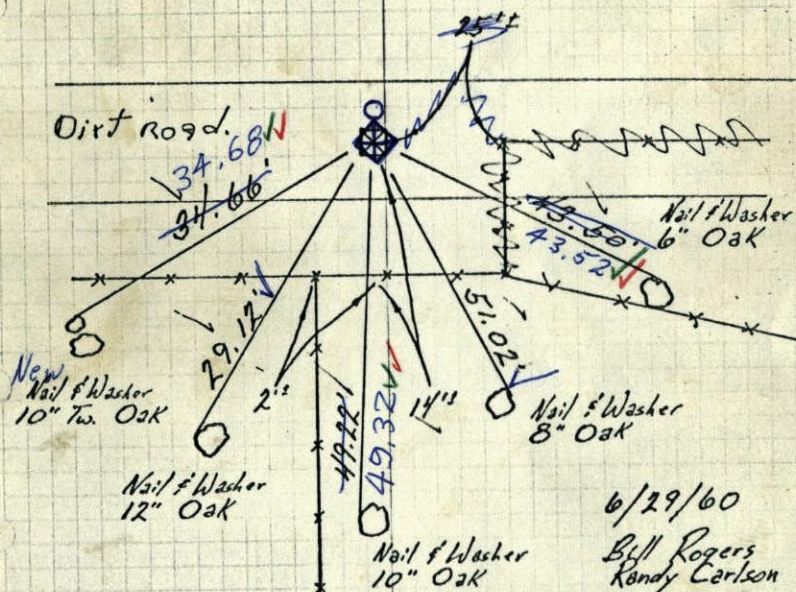 25'±
Dirt Road.
34.68
34.66'
43.50'
43.52
Nail & Washer
6" Oak
29.12'
51.02'
2'±
49.22'
49.32
14'±
New
Nail & Washer
10" Tw. Oak
Nail & Washer
8" Oak
Nail & Washer
12" Oak
Nail & Washer
10" Oak
6/29/60
Bill Rogers
Randy Carlson